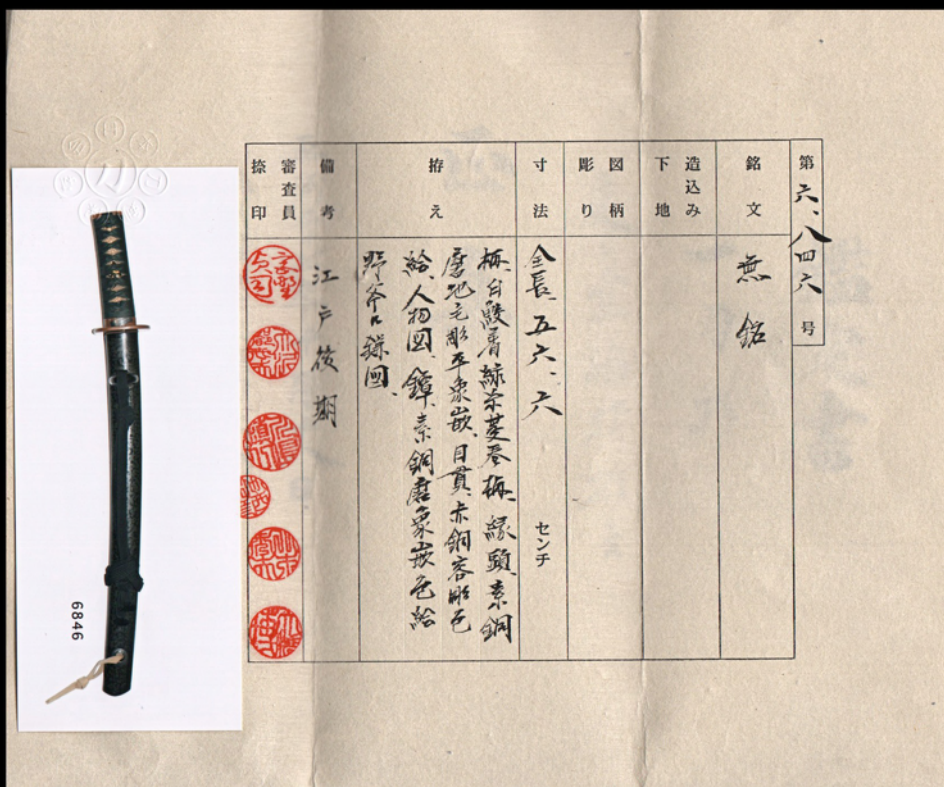 第六、八四六号
銘文
無銘
造込み
下地
図柄
彫り
寸法
全長、五六、六 センチ
拵え
柄、白鮫着緑糸菱巻柄、縁頭、素銅
磨地毛彫平象嵌、目貫、赤銅容彫色
絵、人物図、鐔、素銅磨象嵌色絵
図、
備考
江戸後期
審査員
捺印
6846